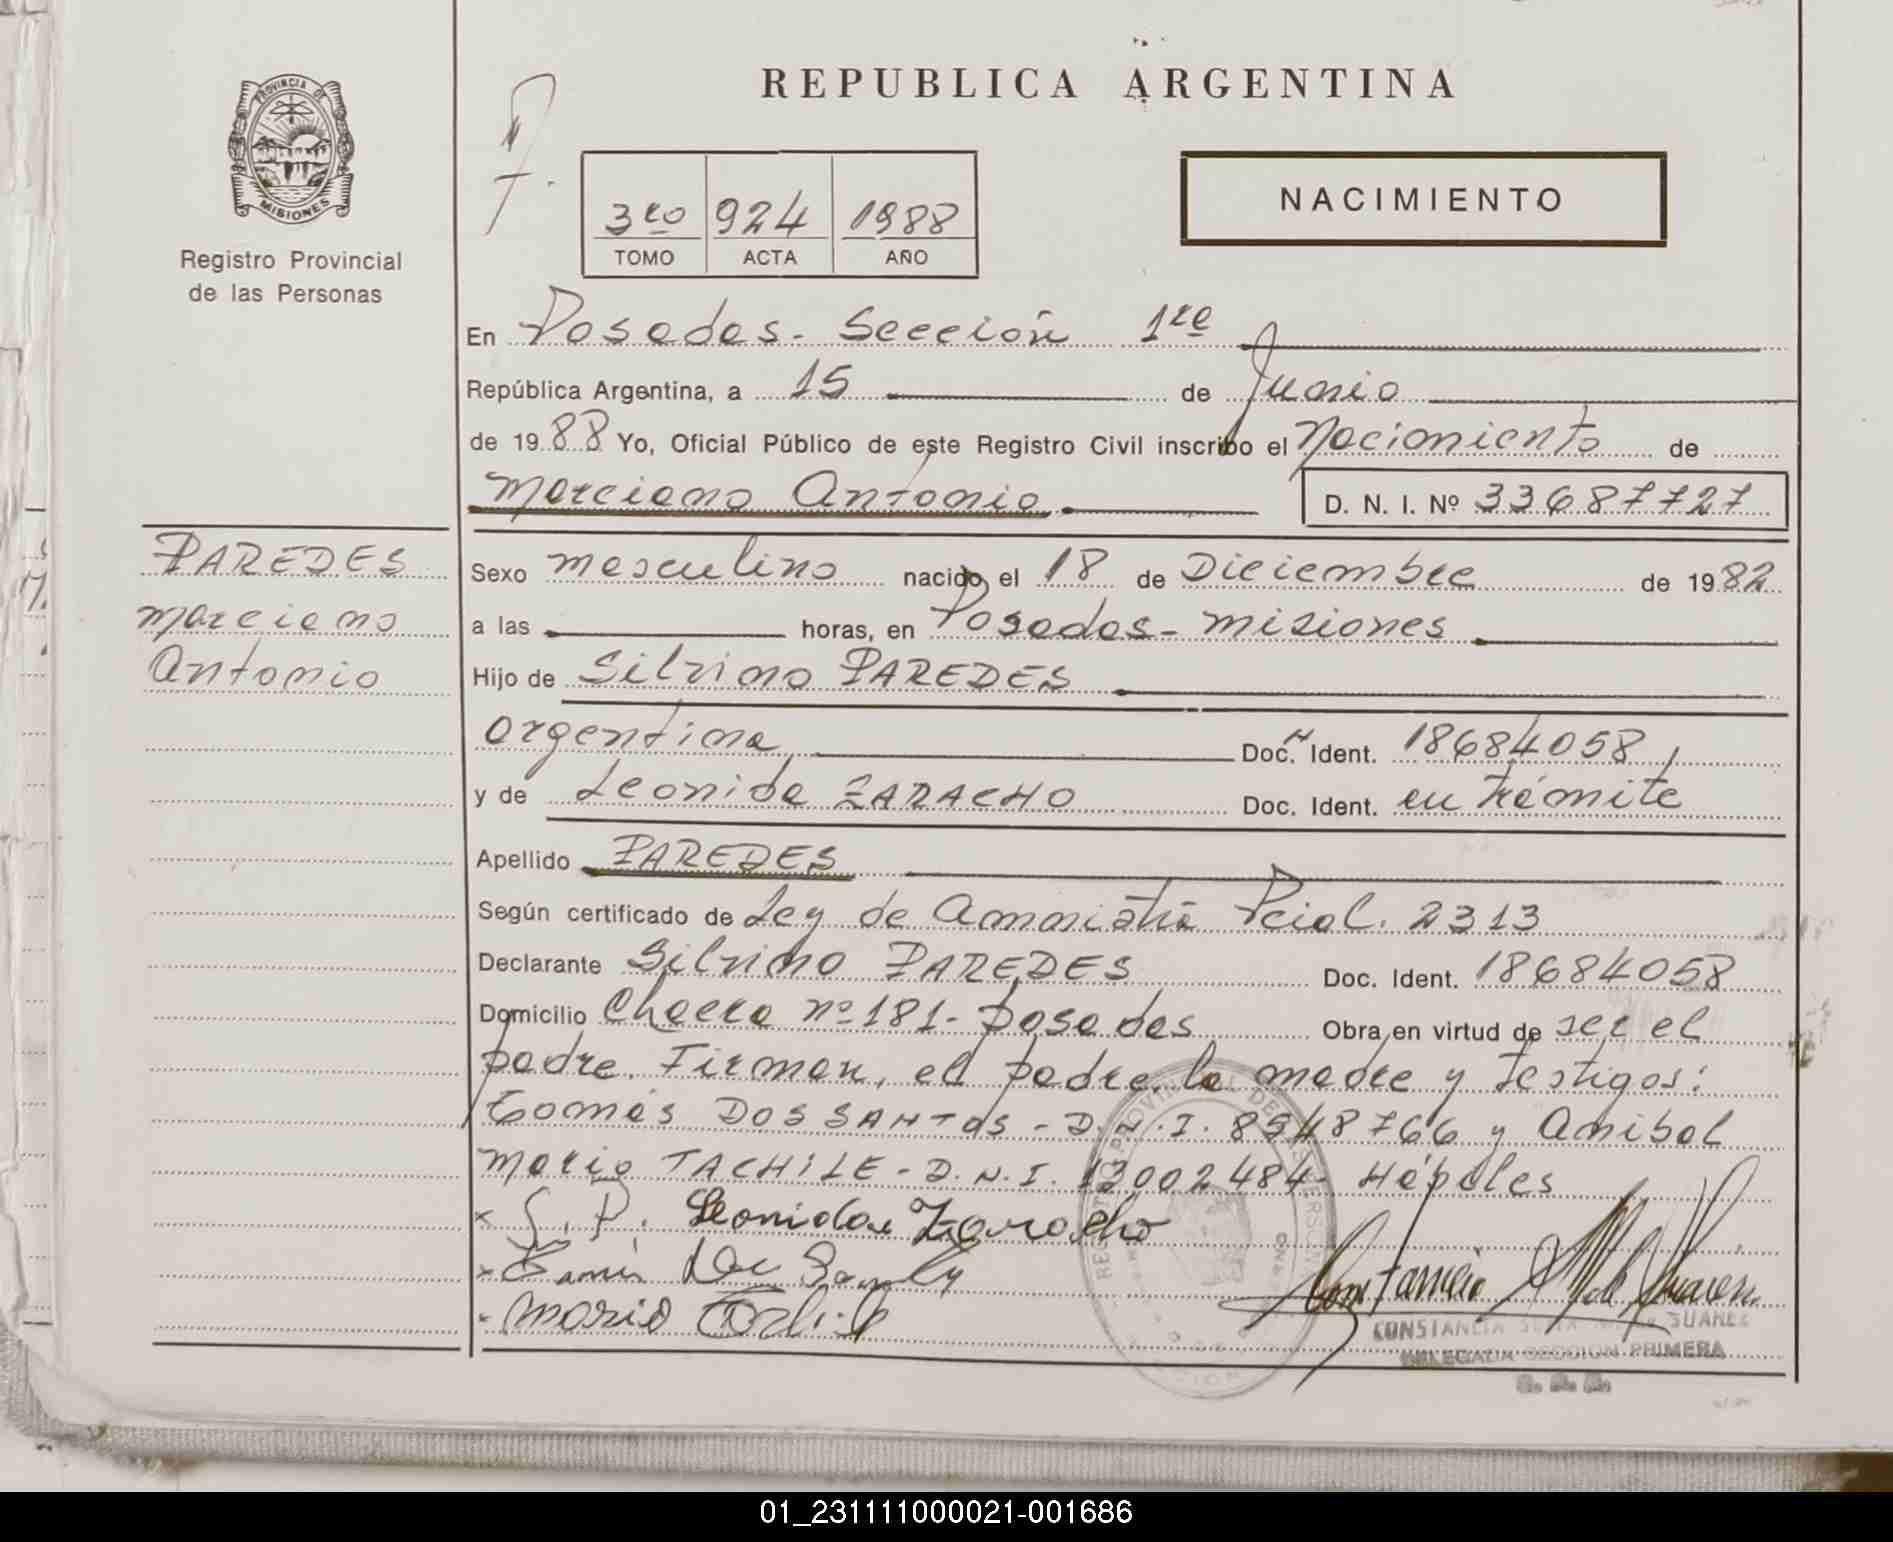 REPUBLICA ARGENTINA
PROVINCIA DE
MISIONES
Registro Provincial
de las Personas
3ro 924 1988
TOMO ACTA AÑO
NACIMIENTO
En Posadas - Sección 1ra
República Argentina, a 15 de Junio
de 1988 Yo, Oficial Público de este Registro Civil inscribo el Nacimiento de
Marciano Antonio D. N. I. Nº 33687727
PAREDES
Marciano
Antonio
Sexo masculino nacido el 18 de Diciembre de 1982
a las horas, en Posadas - Misiones
Hijo de Silvino PAREDES
argentina Doc. Ident. 18684058
y de Leonida ZARACHO Doc. Ident. en trámite
Apellido PAREDES
Según certificado de Ley de Amnistía Pcial. 2313
Declarante Silvino PAREDES Doc. Ident. 18684058
Domicilio Chacra nº 181 - Posadas Obra en virtud de ser el
padre. Firman, el padre, la madre y testigos:
Tomás DOS SANTOS - D.N.I. 8548766 y Anibal
Mario TACHILE - D.N.I. 13002484 - Hábiles
x S. P. Leonida Zaracho
Mario
CONSTANCIA SUAREZ
DELEGADA SECCION PRIMERA
01_231111000021-001686